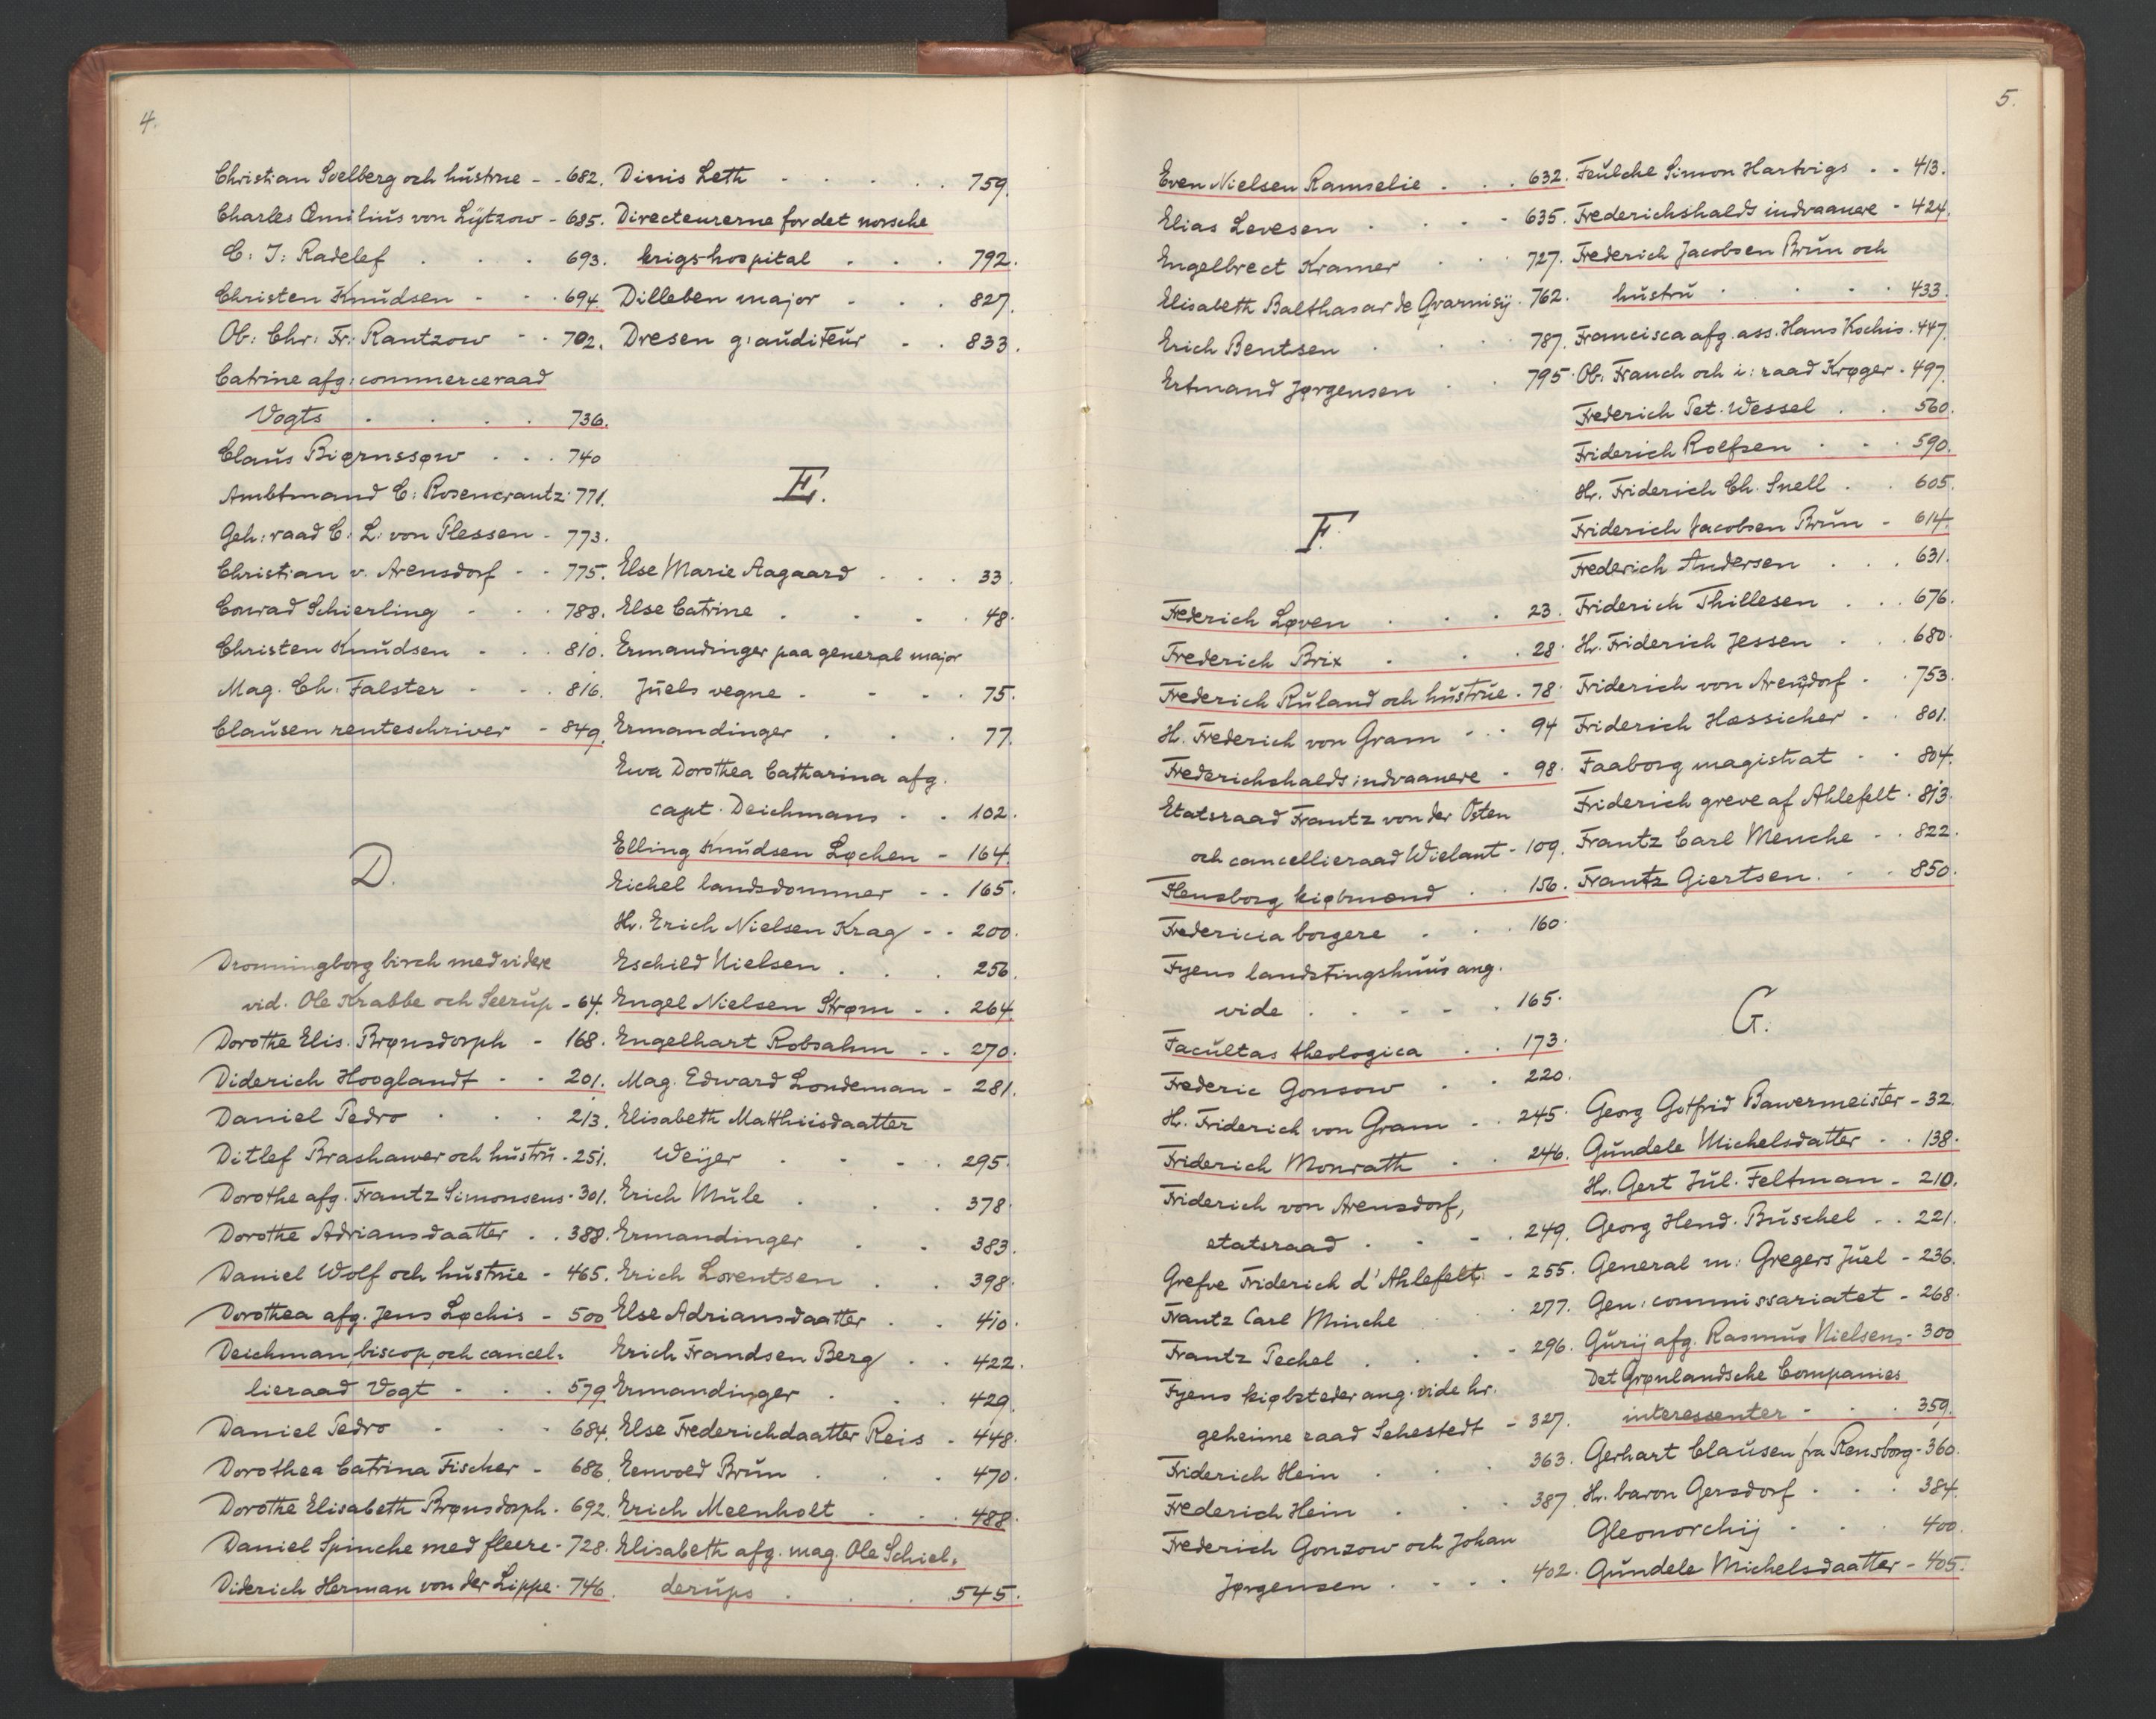 4.
Christian Svelberg och hústrue - - 682.
Charles Æmiliús von Lÿtzow - 685.
C: J: Radelef . . . 693.
Christen Knúdsen - - . 694.
Ob: Chr: Fr: Rantzow - - 702.
Catrine afg: commerceraad
Vogts . . . . 736.
Claús Biørnssøw . . . 740
Ambtmand C: Rosencrantz 771.
Geh: raad C: L: von Plessen - 773.
Christian v. Arensdorf - - 775.
Conrad Schierling - . . 788.
Christen Knúdsen - . . 810.
Mag. Ch: Falster - - . 816.
Claúsen renteschriver - 849.
D.
Dronningborg birch med videre
vid. Ole Krabbe och Seerúp - 64.
Dorothe Elis. Brønsdorph - 168.
Diderich Hooglandt - - 201.
Daniel Pedro . . . 213.
Ditlef Brashawer och hústrú - 251.
Dorothe afg. Frantz Simonsens - 301.
Dorothe Adriansdaatter . . 388.
Daniel Wolf och hústrúe - 465.
Dorothea afg. Jens Løchis - 500
Deichman, biscop, och cancel-
lieraad Vogt - . . 579
Daniel Pedro - . . 684.
Dorothea Catrina Fischer - 686.
Dorothe Elisabeth Brønsdorph. 692.
Daniel Spinche med fleere - 728.
Diderich Herman von der Lippe. 746.
Dinis Leth - . . . . 759.
Directeurerne for det norsche
krigshospital . . . 792.
Dilleben major - . . 827.
Dresen g: aúditeúr - . 833.
E.
Else Marie Aagaard . . . 33.
Else Catrine . . . . 48.
Ermandinger paa general major
Júels vegne - - - . 75.
Ermandinger . . . 77.
Eva Dorothea Catharina afg.
capt. Deichmans - . 102.
Elling Knúdsen Løchen - 164.
Eichel landsdommer - - 165.
Hr. Erich Nielsen Krag - - 200.
Eschild Nielsen . . . 256.
Engel Nielsen Strøm - . 264.
Engelhart Robsahm - - 270.
Mag. Edward Londeman - 281.
Elisabeth Matthiisdaatter
Weijer . - - . 295.
Erich Múle . . . 378.
Ermandinger . . 383.
Erich Lorentsen . . 398.
Else Adriansdaatter . . 410.
Erich Frandsen Berg . . 422.
Ermandinger . . . 429.
Else Frederichdaatter Reis - 448.
Eenvold Brún . . . 470.
Erich Meenholt . . . 488.
Elisabeth afg. mag. Ole Schiel-
derúps . . . 545.
5.
Even Nielsen Ramselie . . . 632.
Elias Levesen . . . - 635.
Engelbrect Kramer . . . 727.
Elisabeth Balthasar de Qvarnisij . 762.
Erich Bentsen . . . 787.
Ertmand Jørgensen . . 795.
F.
Frederich Løven . . . 23.
Frederich Brix . . . 28.
Frederich Rúland och hústrúe . 78.
H. Frederich von Gram - . . 94
Frederichshalds indvaanere - 98.
Etatsraad Frantz von der Osten
och cancellieraad Wielant - 109.
Flensborg kiøbmænd . . 156.
Fredericia borgere . . . 160.
Fyens landstingshúús ang.
vide . . - - . 165.
Facúltas theologica . . 173.
Frederic Gonsow . . 220.
H. Friderich von Gram - . 245.
Friderich Monrath . . 246.
Friderich von Arensdorf,
etatsraad . . - . 249.
Grefve Friderich d'Ahlefelt - 255.
Frantz Carl Minche . . 277.
Frantz Pechel . . . - 296.
Fyens kiøbsteder ang. vide hr.
geheime raad Sehestedt - 327.
Friderich Hein . . . 363.
Frederich Hein . . . 387.
Frederich Gonzow och Johan
Jørgensen . . . . 402.
Feúlche Simon Hartvigs . . 413.
Frederichshalds indvaanere - 424.
Frederich Jacobsen Brún och
hústrú . . . . 433.
Francisca afg. ass. Hans Kochis . 447.
Ob: Franch och i: raad Krøger . 497.
Frederich Pet. Wessel . . 560.
Friderich Roefsen . . . 590.
Hr. Friderich Ch. Snell . . 605.
Friderich Jacobsen Brún - 614.
Frederich Andersen . . . 631.
Friderich Thillesen . . . 676.
H. Friderich Jessen . . . 680.
Friderich von Arensdorf - . 753.
Friderich Hassicher - . 801.
Faaborg magistrat - . 804.
Friderich greve af Ahlefelt . 813.
Frantz Carl Menche - . 822.
Frantz Giertsen . . . 850.
G.
Georg Gotfrid Bawermeister - 32.
Gúndele Michelsdatter . . 138.
Hr. Gert Júl. Feltman - 210.
Georg Hend. Búschel . . 221.
General m: Gregers Júel - 236.
Gen: commissariatet - 268.
Gúrij afg. Rasmús Nielsens - 300
Det Grønlandsche Companies
interessenter - . . 359.
Gerhart Claúsen fra Rensborg - 360.
Hr. baron Gersdorf . . . 384.
Gleonorchij . . . 400.
Gúndele Michelsdaatter - 405.